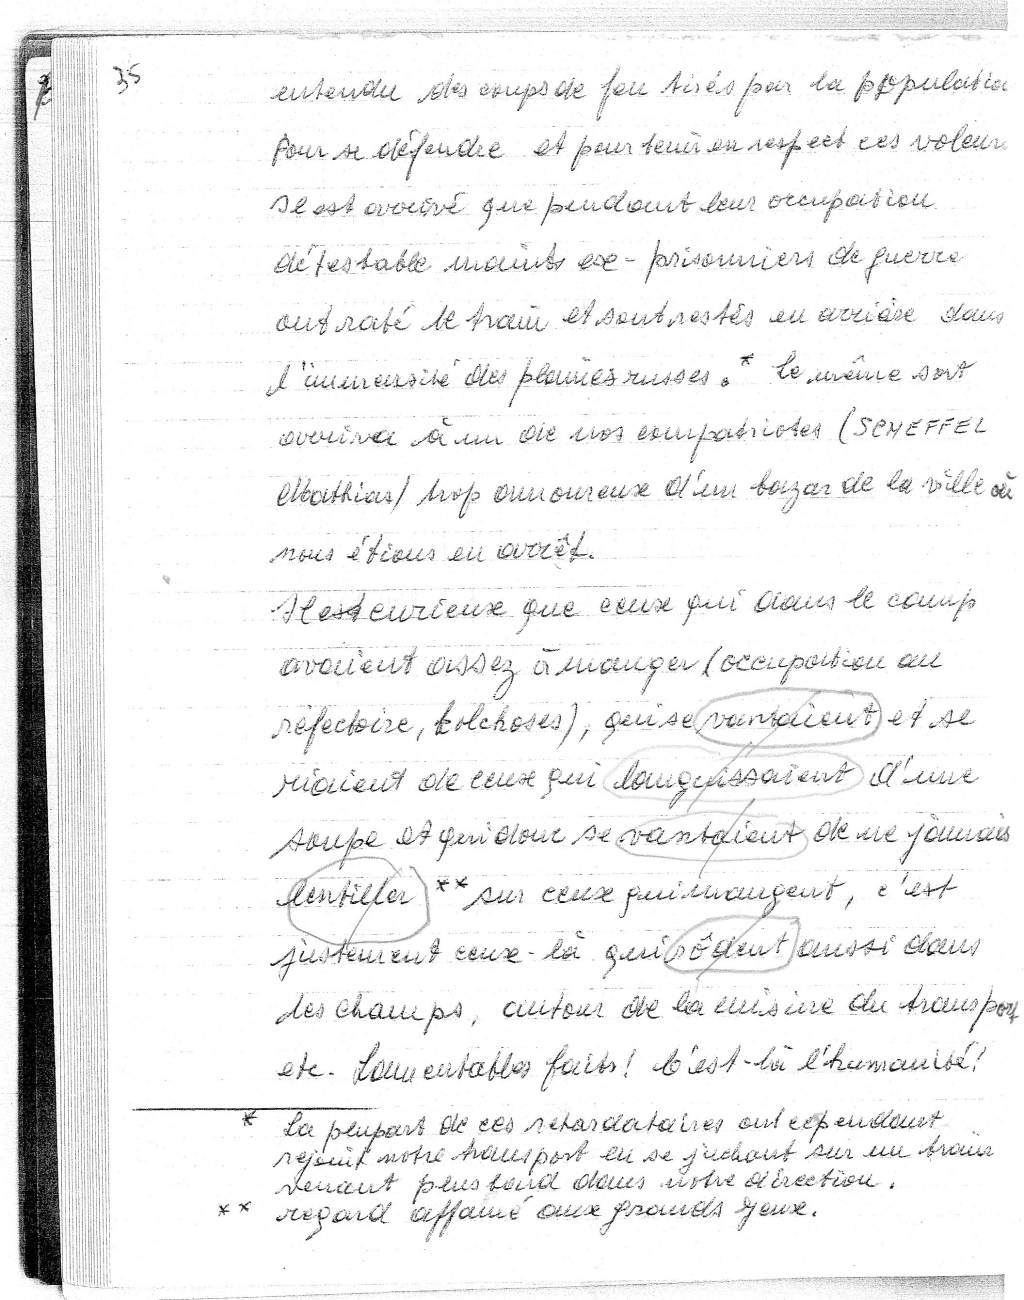 35
entendu des coups de feu tirés par la population
Pour se défendre et pour tenir en respect ces voleurs
Il est arrivé que pendant leur occupation
détestable maints ex-prisonniers de guerre
ont raté le train et sont restés en arrière dans
l'immensité des plaines russes.* Le même sort
arriva à un de nos compatriotes (SCHEFFEL
Mathias) trop amoureux d'un bazar de la ville où
nous étions en arrêt.
Il est curieux que ceux qui dans le camp
avaient assez à manger (occupation au
réfectoire, kolchoses), qui se vantaient et se
riaient de ceux qui languissaient d'une
soupe et qui donc se vantaient de ne jamais
lentiller ** sur ceux qui mangent, c'est
justement ceux-là qui rôdent aussi dans
les champs, autour de la cuisine du transport
etc. Lamentables faits! C'est-là l'humanité!
* La plupart de ces retardataires ont cependant
rejoint notre transport en se juchant sur un train
venant plus tard dans notre direction.
** regard affamé aux grands yeux.